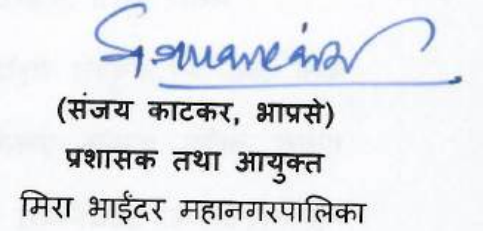 (संजय काटकर, भाप्रसे)
प्रशासक तथा आयुक्त
मिरा भाईंदर महानगरपालिका